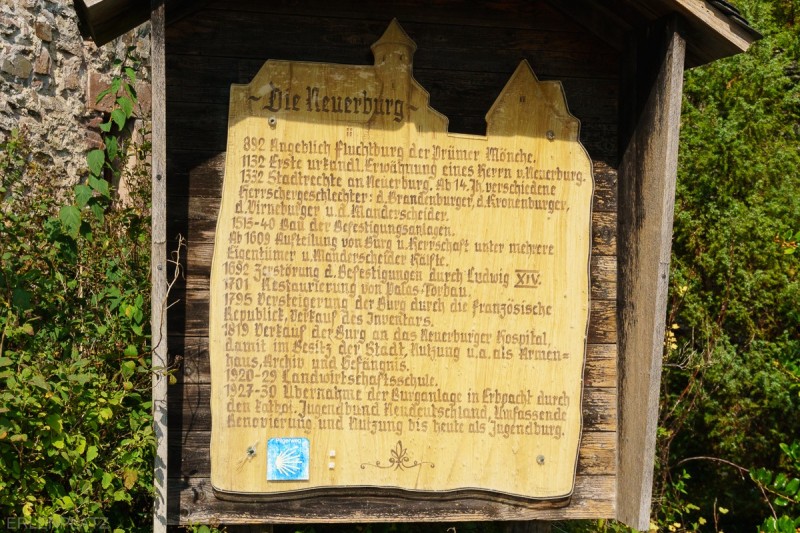 ~Die Neuerburg~
892 Angeblich Fluchtburg der Prümer Mönche.
1132 Erste urkundl. Erwähnung eines Herrn v. Neuerburg.
1332 Stadtrechte an Neuerburg. Ab 14. Jh. verschiedene
Herrschergeschlechter: d. Brandenburger, d. Kronenburger,
d. Virneburger u. d. Manderscheider.
1515-40 Bau der Befestigungsanlagen.
Ab 1609 Aufteilung von Burg u. Herrschaft unter mehrere
Eigentümer u. Manderscheider Hälfte.
1692 Zerstörung d. Befestigungen durch Ludwig XIV.
1701 Restaurierung von Palas, Torbau.
1795 Versteigerung der Burg durch die französische
Republick, Verkauf des Inventars.
1819 Verkauf der Burg an das Neuerburger Hospital,
damit im Besitz der Stadt, Nutzung u.a. als Armen=
haus, Archiv und Gefängnis.
1920-29 Landwirtschaftsschule.
1927-30 Übernahme der Burganlage in Erbpacht durch
den kathol. Jugendbund Neudeutschland, Umfassende
Renovierung und Nutzung bis heute als Jugendburg.